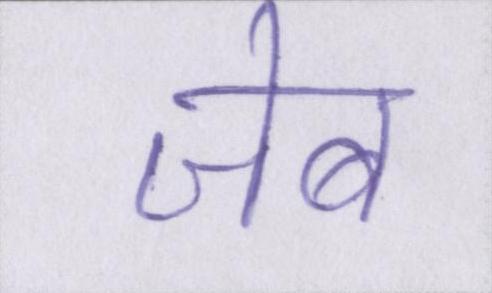 जेब